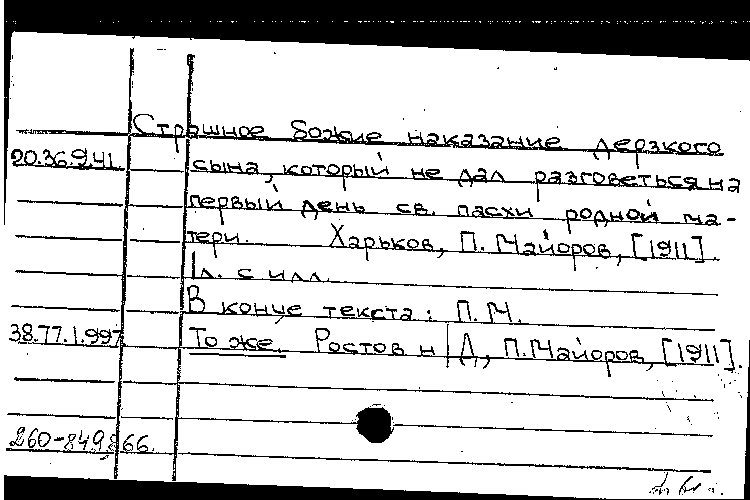 Страшное Божие наказание дерзкого
20.36.9.41 сына, который не дал разговеться на
первый день св. пасхи родной ма-
тери. Харьков, П. Майоров, [1911].
1л. с илл.
В конце текста: П.М.
38.77.1.997 То же. Ростов н/Д, П. Майоров, [1911].
260-849866.